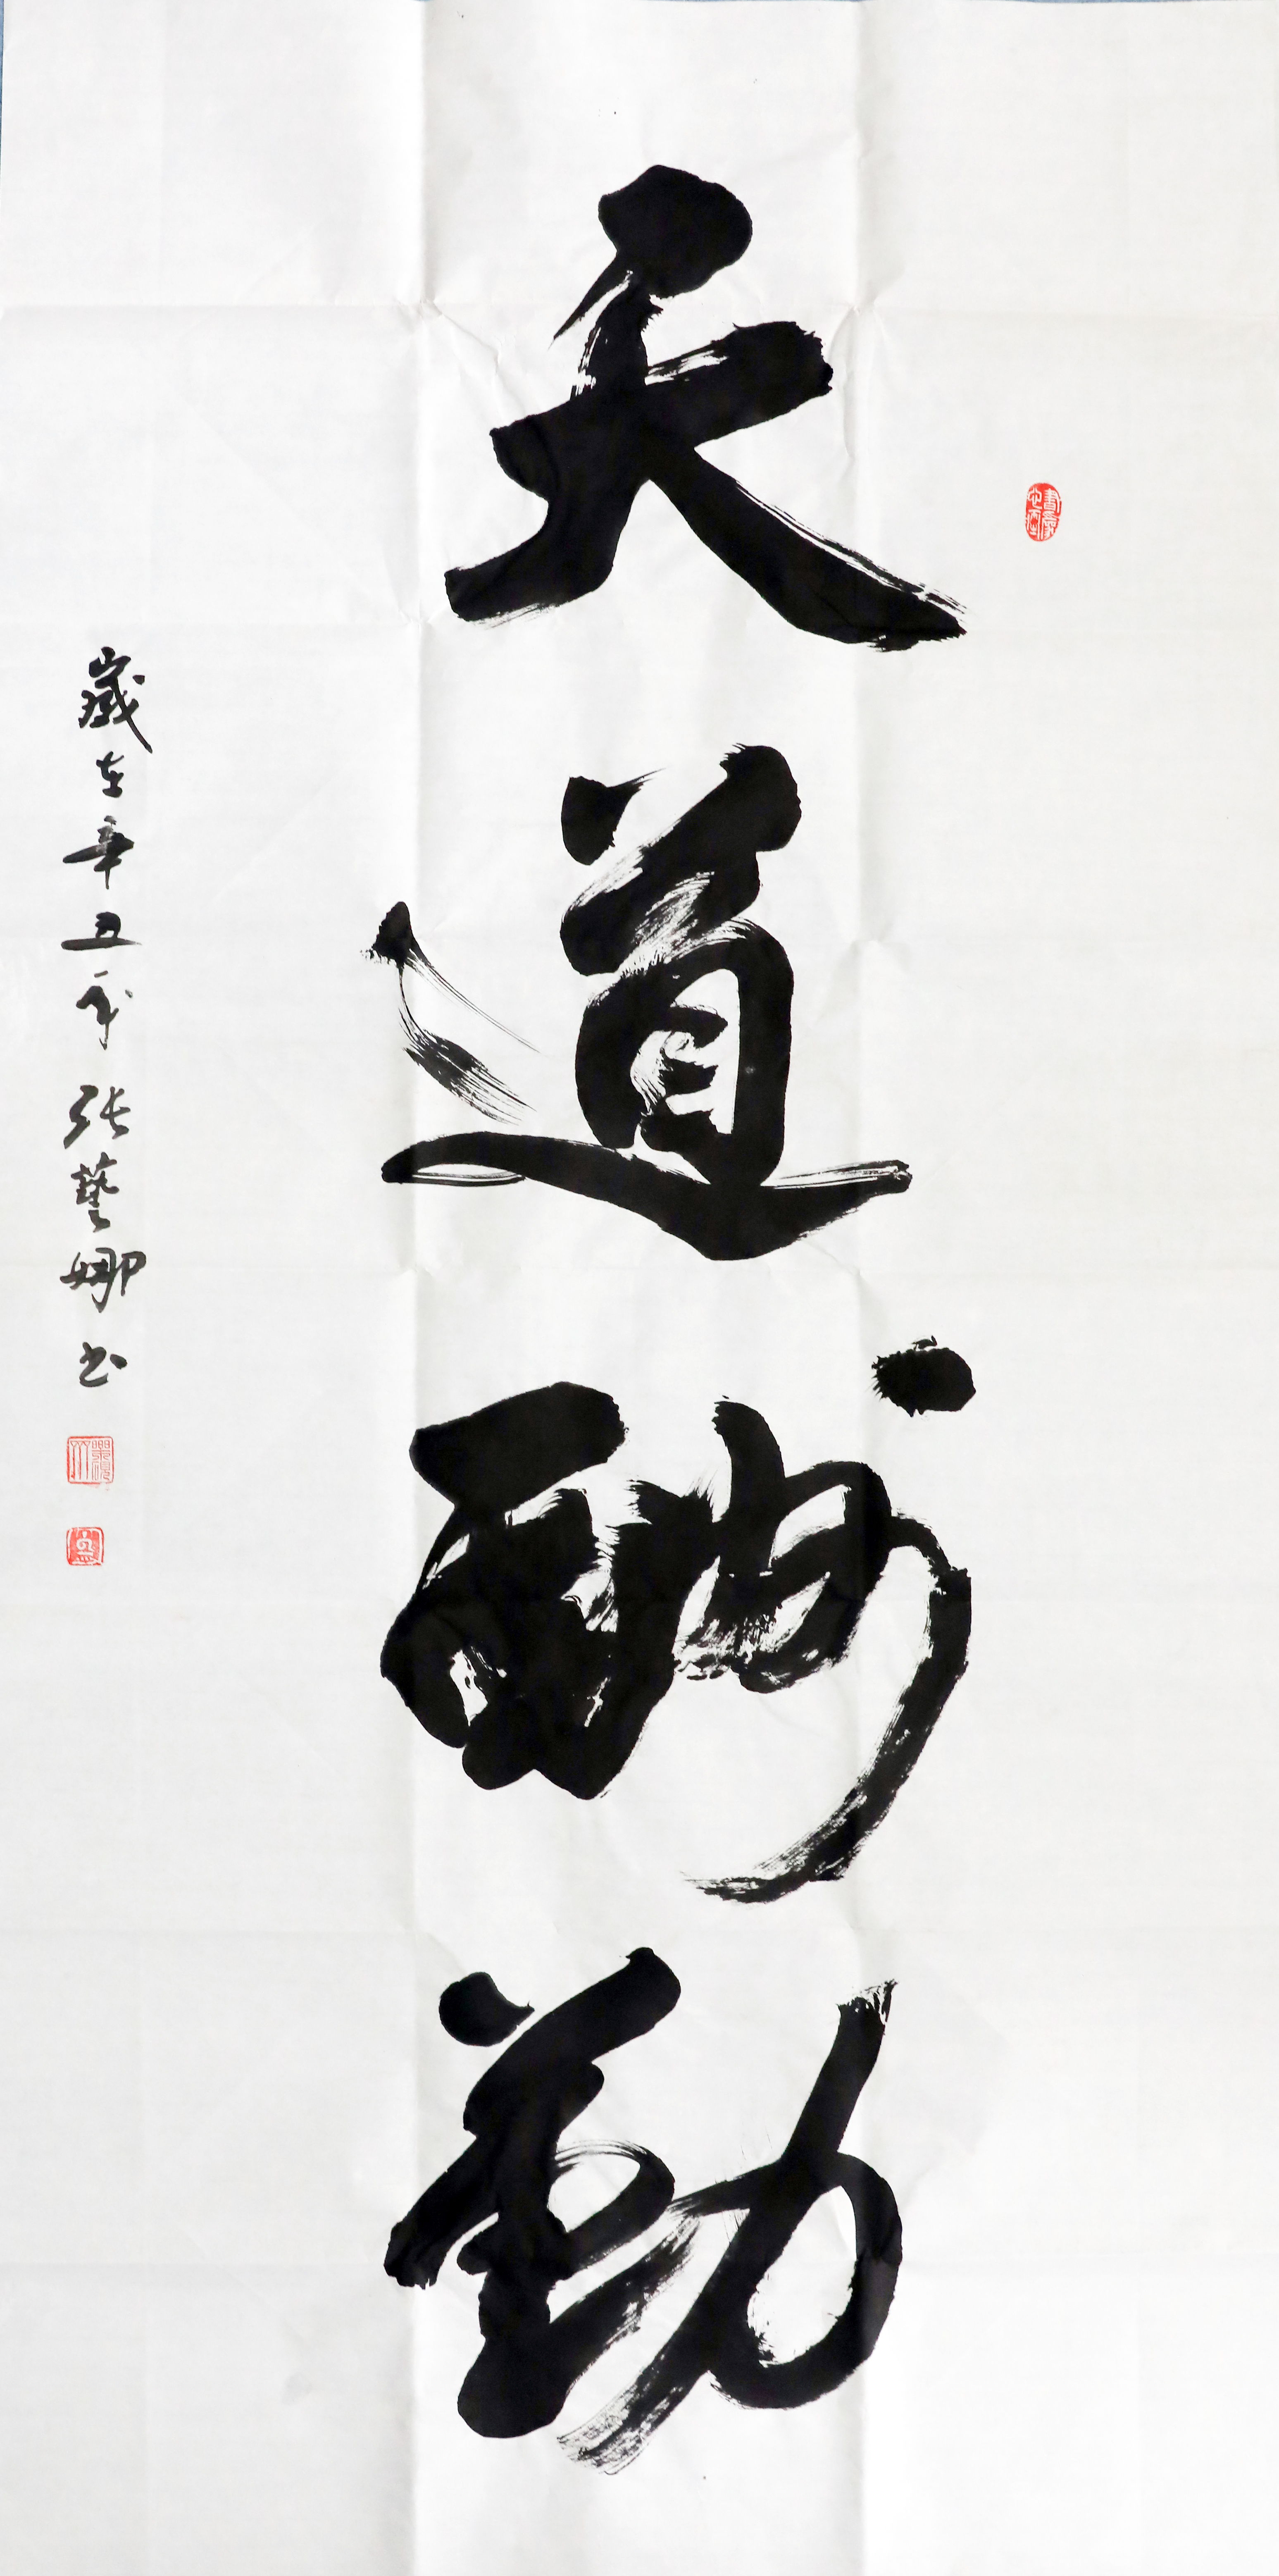 天道酬勤
歲在辛丑年张藝娜书